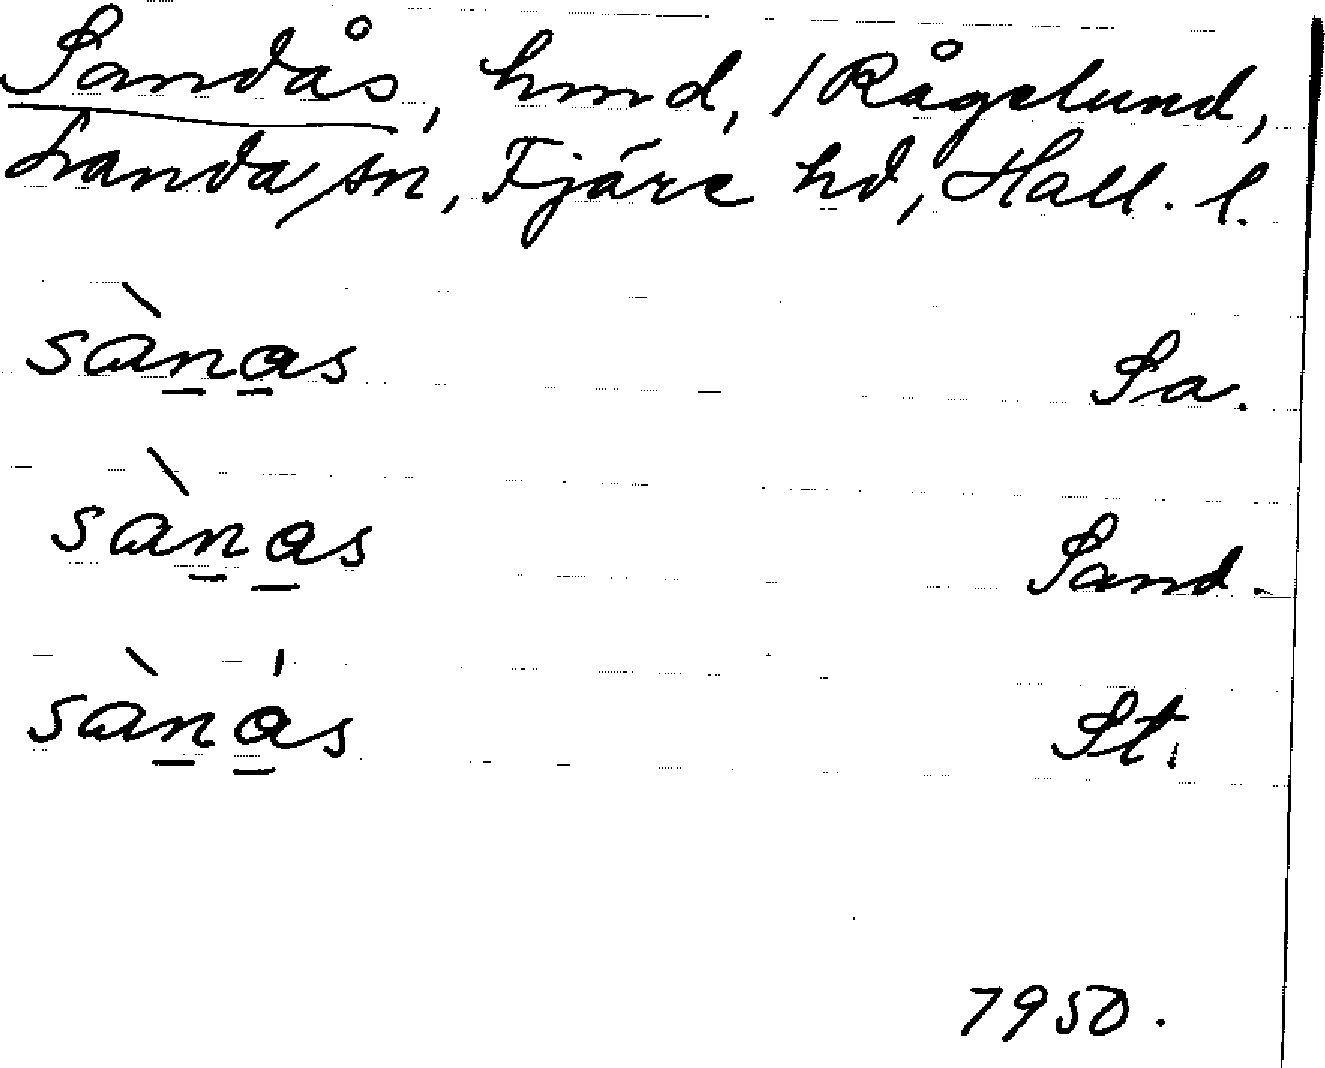 Sandås, hmd, /Rågelund,
Landa/ sn, Fjäre hd, Hall. l.
sànas Sa.
sànas Sand.
sànás St.
7950.